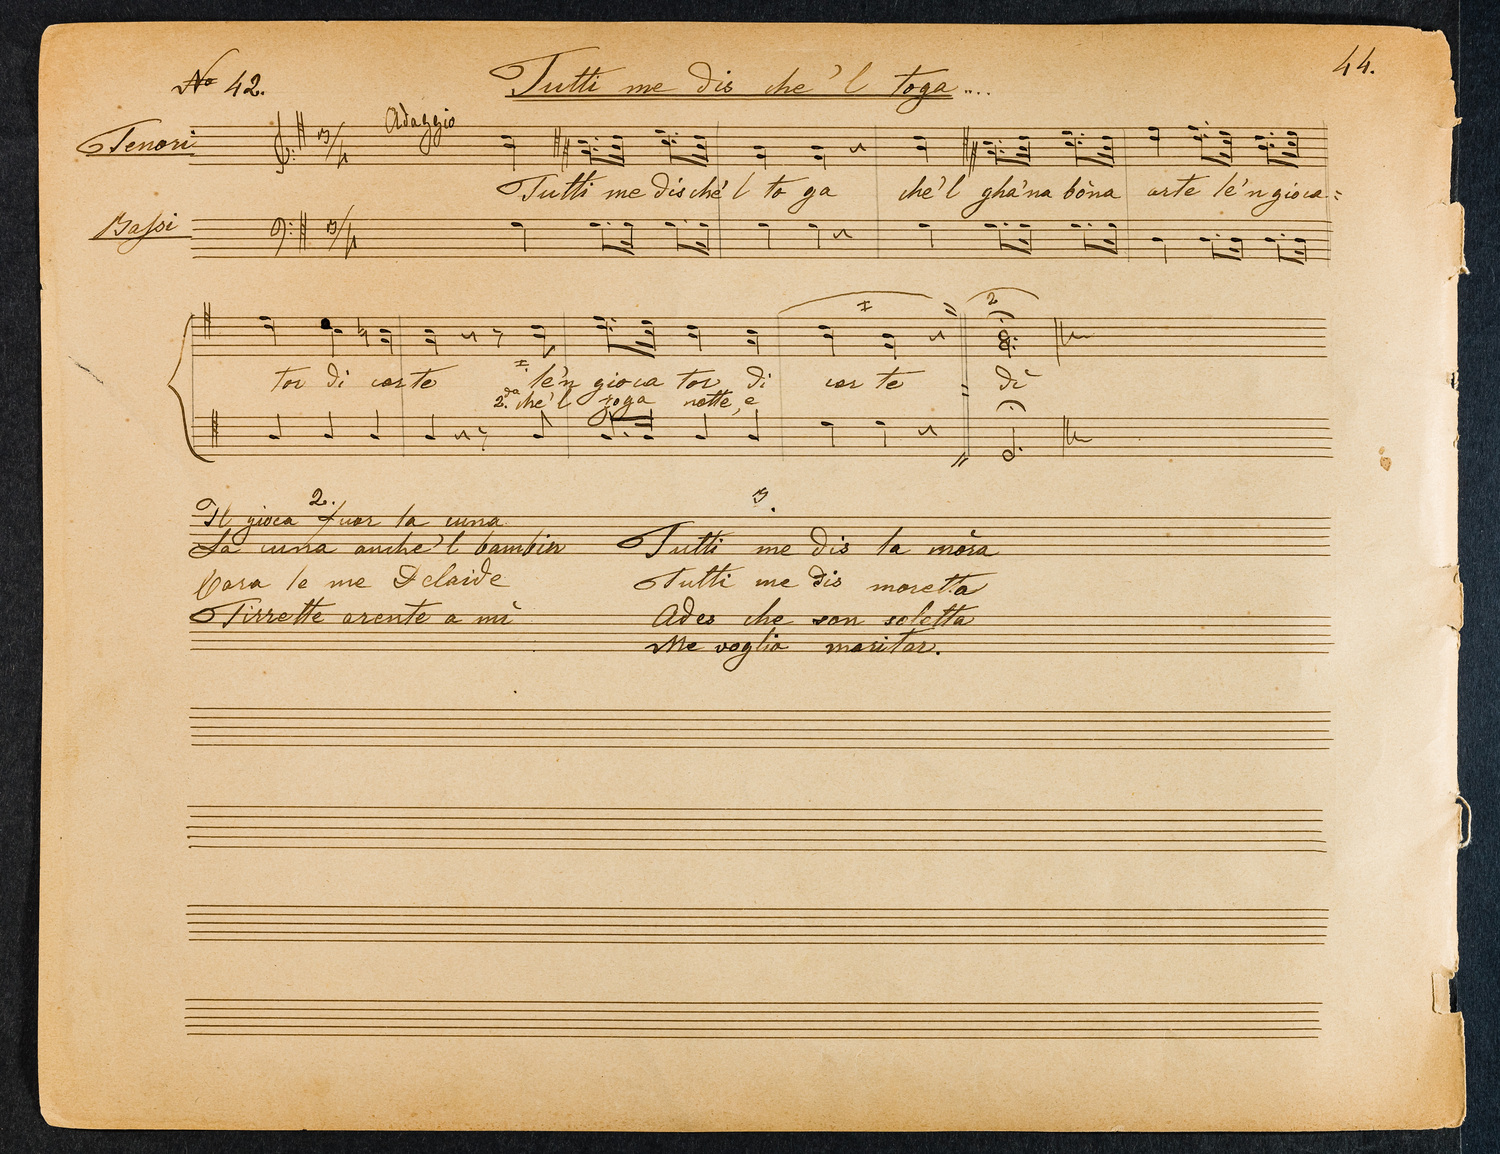 No 42.
Tutti me dis che'l toga....
44.
Tenori
Adaggio
Tutti me dis ché'l to ga ché'l gha'na bòna arte le'n gioca=
Bassi
1
2
tor di carte 1 le'n gioca tor di car te dì
2.da che'l zoga notte, e
2.
Il gioca fuor la cuna
La cuna anche'l bambin
Cara le me Delaide
Tirrette arente a mì
3.
Tutti me dis la mòra
Tutti me dis moretta
Ades che son soletta
Me voglio maritar.